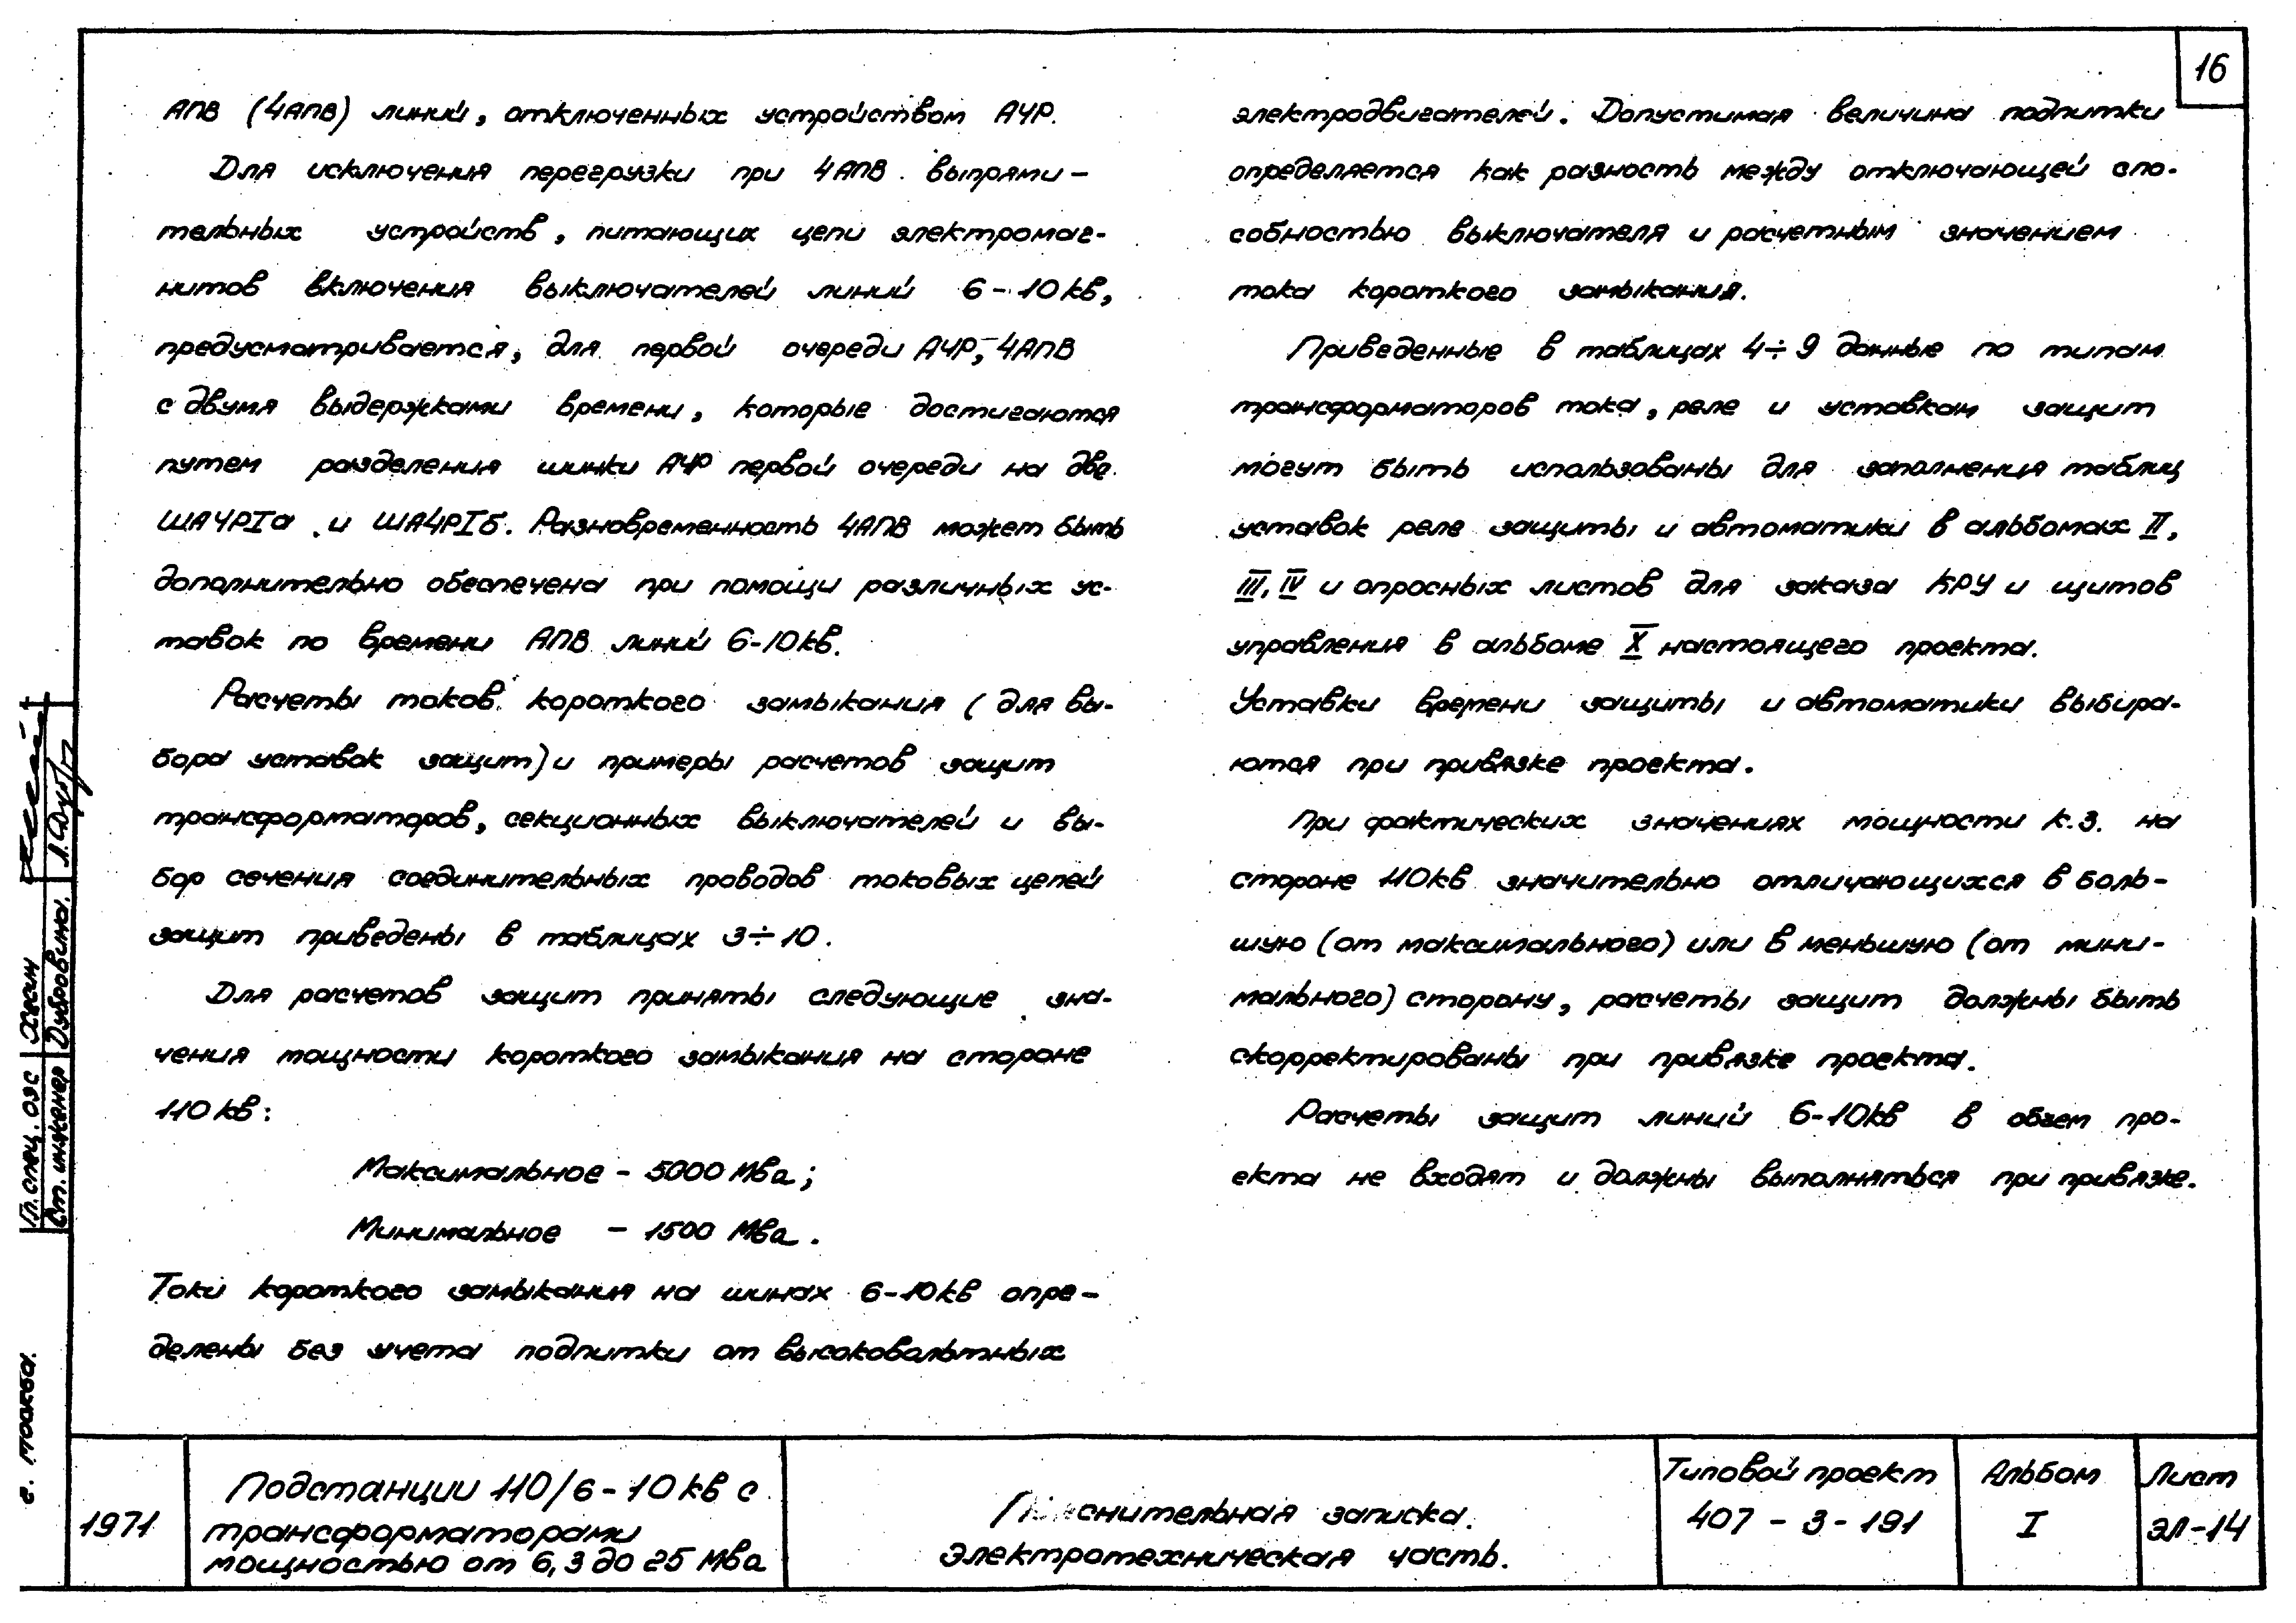 16
АПВ (ЧАПВ) линий, отключенных устройством АЧР.
Для исключения перегрузки при ЧАПВ выпрями-
тельных устройств, питающих цепи электромаг-
нитов включения выключателей линий 6-10кв,
предусматривается, для первой очереди АЧР,-ЧАПВ
с двумя выдержками времени, которые достигаются
путем разделения шинки АЧР первой очереди на две
ШАЧРIа и ШАЧРIб. Разновременность ЧАПВ может быть
дополнительно обеспечена при помощи различных ус-
тавок по времени АПВ линий 6-10кв.
Расчеты токов короткого замыкания (для вы-
бора уставок защит) и примеры расчетов защит
трансформаторов, секционных выключателей и вы-
бор сечения соединительных проводов токовых цепей
защит приведены в таблицах 3÷10.
Для расчетов защит приняты следующие зна-
чения мощности короткого замыкания на стороне
110кв:
Максимальное - 5000 Мва;
Минимальное - 1500 Мва.
Токи короткого замыкания на шинах 6-10кв опре-
делены без учета подпитки от высоковольтных
электродвигателей. Допустимая величина подпитки
определяется как разность между отключающей спо-
собностью выключателя и расчетным значением
тока короткого замыкания.
Приведенные в таблицах 4÷9 данные по типам
трансформаторов тока, реле и уставкам защит
могут быть использованы для заполнения таблиц
уставок реле защиты и автоматики в альбомах II,
III, IV и опросных листов для заказа КРУ и щитов
управления в альбоме X настоящего проекта.
Уставки времени защиты и автоматики выбира-
ются при привязке проекта.
При фактических значениях мощности к.з. на
стороне 110кв значительно отличающихся в боль-
шую (от максимального) или в меньшую (от мини-
мального) сторону, расчеты защит должны быть
скорректированы при привязке проекта.
Расчеты защит линий 6-10кв в объем про-
екта не входят и должны выполняться при привязке.
Гл. спец. ОЭС Хвсин
Ст. инженер Дубровина Л.Дуб
г. Москва.
1971
Подстанции 110/6-10кв с
трансформаторами
мощностью от 6,3 до 25 Мва
Пояснительная записка.
Электротехническая часть.
Типовой проект
407-3-191
Альбом
I
Лист
ЭЛ-14